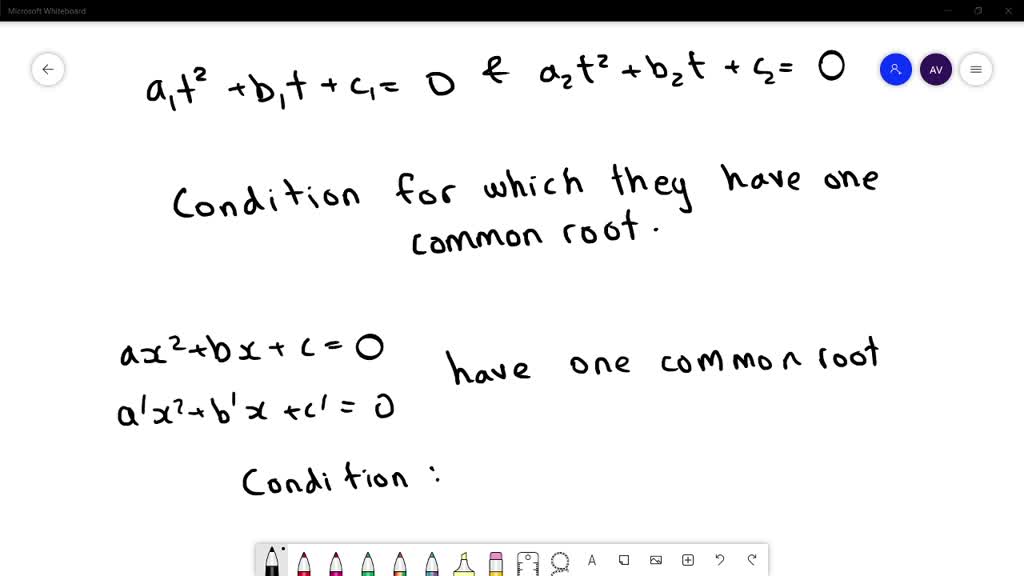 Microsoft Whiteboard
a₁t² + b₁t + c₁ = 0 & a₂t² + b₂t + c₂ = 0
AV
Condition for which they have one
common root.
ax² + bx + c = 0
have one common root
a'x² + b'x + c' = 0
Condition :
A